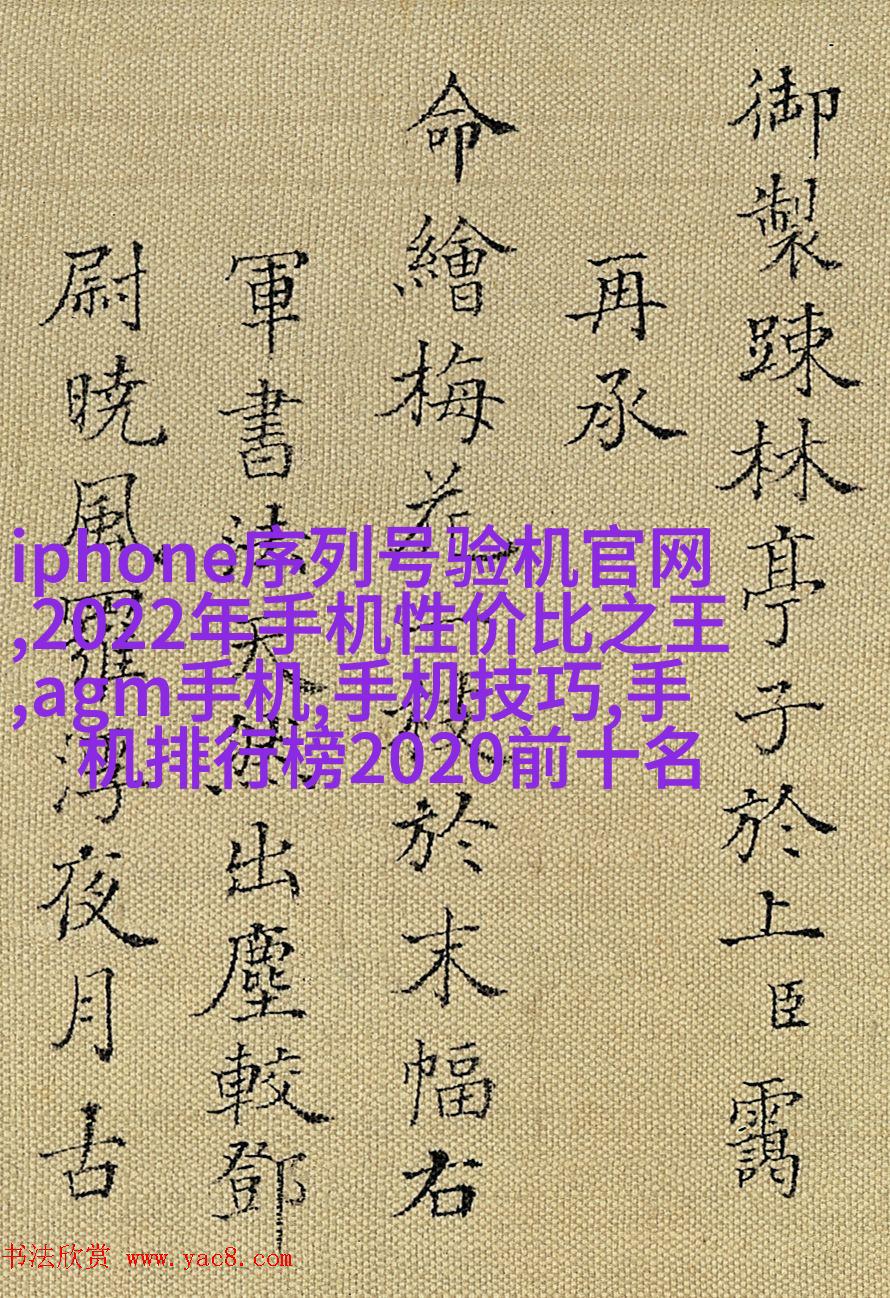 御製踈林亭子於上臣靄
再承
命繪梅花一枝於末幅右
軍書法天出塵較鄧
尉暁風羅浮夜月古
iphone序列号验机官网
,2022年手机性价比之王
,agm手机,手机技巧,手
机排行榜2020前十名
书法欣赏 www.yac8.com